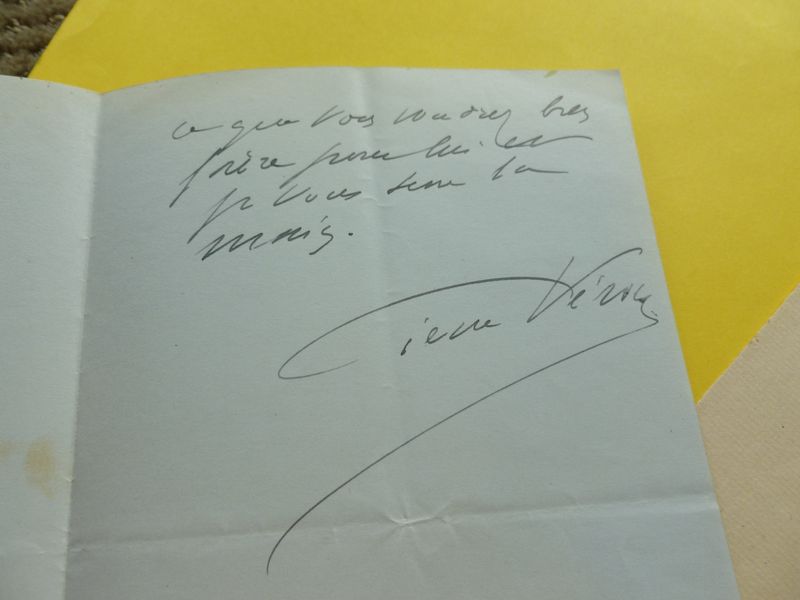 ce que vous voudrez bien
faire pour lui et
je vous serre la
main.
Pierre Véron